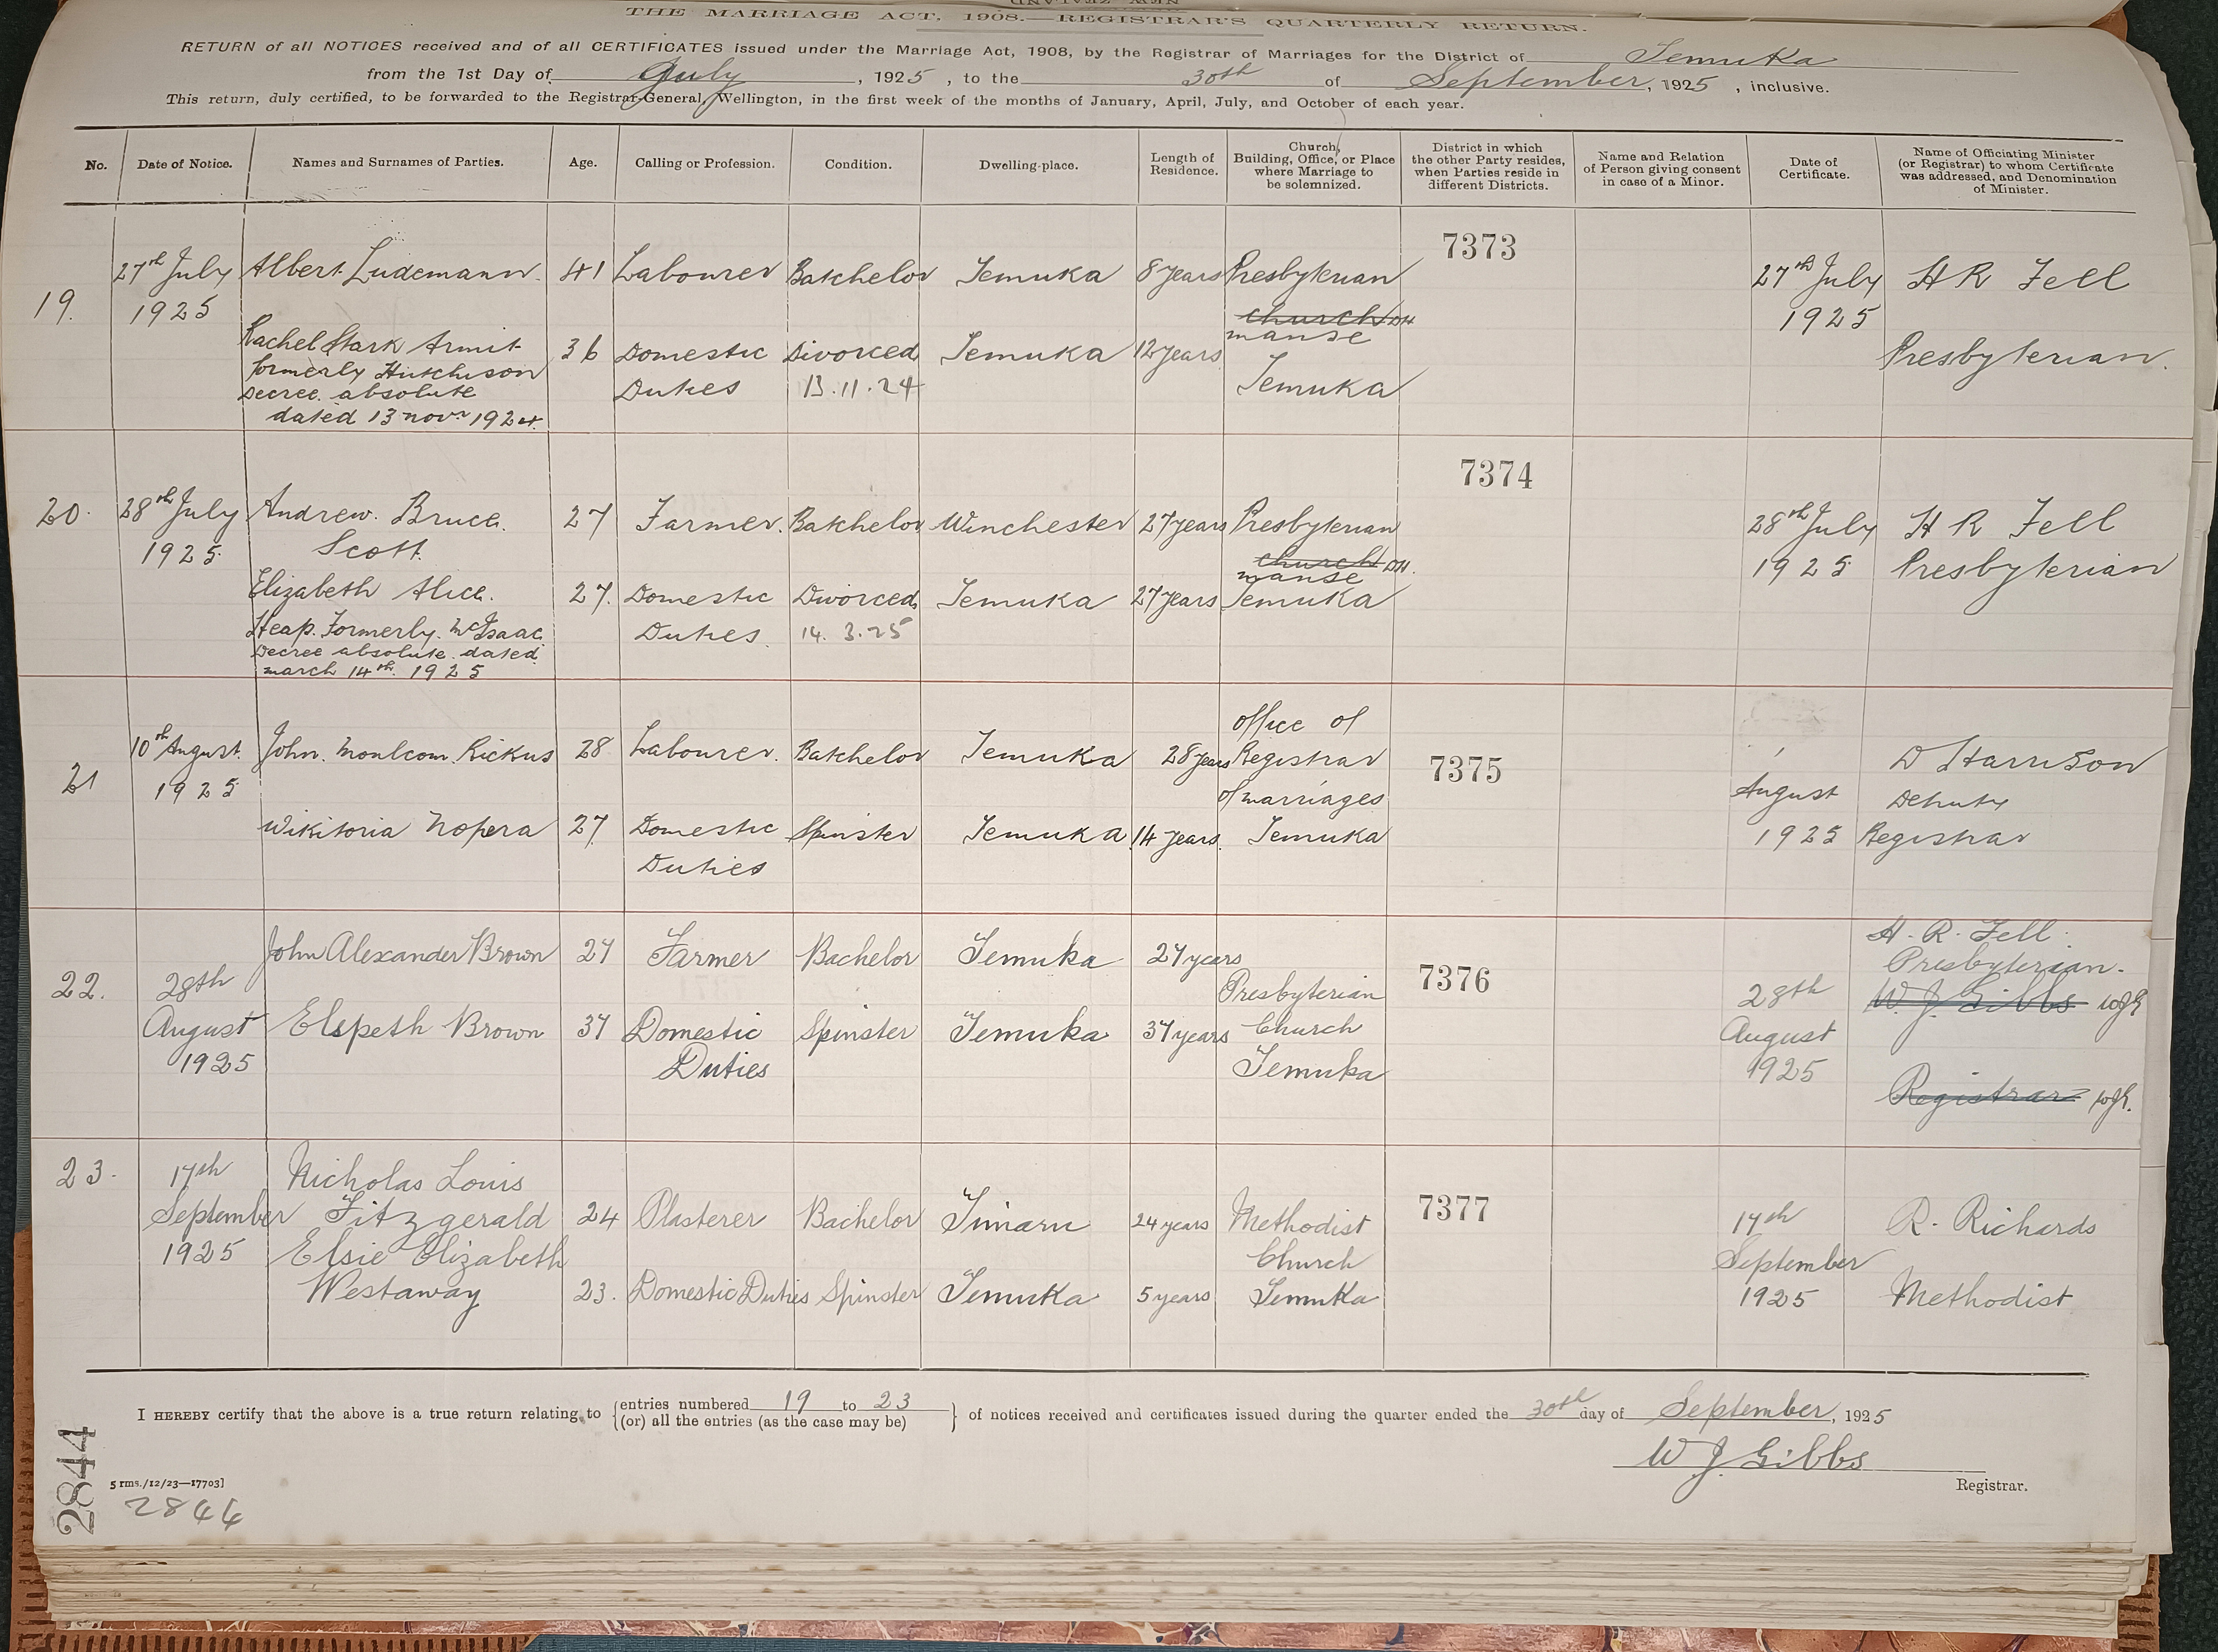 THE MARRIAGE ACT, 1908.—REGISTRAR'S QUARTERLY RETURN.
RETURN of all NOTICES received and of all CERTIFICATES issued under the Marriage Act, 1908, by the Registrar of Marriages for the District of Temuka
from the 1st Day of July, 1925, to the 30th of September, 1925, inclusive.
This return, duly certified, to be forwarded to the Registrar-General, Wellington, in the first week of the months of January, April, July, and October of each year.
No. Date of Notice. Names and Surnames of Parties. Age. Calling or Profession. Condition. Dwelling-place. Length of Residence. Church, Building, Office, or Place where Marriage to be solemnized. District in which the other Party resides, when Parties reside in different Districts. Name and Relation of Person giving consent in case of a Minor. Date of Certificate. Name of Officiating Minister (or Registrar) to whom Certificate was addressed, and Denomination of Minister.
7373
27th July Albert Ludemann. 41 Labourer Batchelor Temuka 8 years Presbyterian 27th July H R Fell
19. 1925 church DH 1925
manse
Rachel Stark Armit 36 Domestic Divorced Temuka 12 years Presbyterian.
formerly Hutchison Duties 13.11.24 Temuka
Decree absolute
dated 13 Novr 1924.
7374
20. 28th July Andrew. Bruce. 27 Farmer. Batchelor Winchester 27 years Presbyterian 28th July H R Fell
1925. Scott. church DH. 1925 Presbyterian
manse
Elizabeth Alice. 27. Domestic Divorced Temuka 27 years Temuka
Heap. Formerly. McIsaac Duties. 14. 3. 25
Decree absolute dated
march 14th. 1925
office of
10th August. John. Monlcom. Rickus 28 Labourer. Batchelor Temuka 28 years Registrar 7375 D Harrison
21 1925 of marriages August Deputy
Wikitoria Nopera 27 Domestic Spinster Temuka 14 years. Temuka 1925 Registrar
Duties
H. R. Fell.
John Alexander Brown 27 Farmer Bachelor Temuka 27 years Presbyterian.
22. 28th Presbyterian 7376 28th W. J. Gibbs WJG
August Elspeth Brown 37 Domestic Spinster Temuka 37 years Church August
1925 Duties Temuka 1925
Registrar WJG.
23. 17th Nicholas Louis
September Fitzgerald 24 Plasterer Bachelor Timaru 24 years Methodist 7377 17th R. Richards
1925 Elsie Elizabeth Church September
Westaway 23. Domestic Duties Spinster Temuka 5 years Temuka 1925 Methodist
I HEREBY certify that the above is a true return relating to {entries numbered 19 to 23
{(or) all the entries (as the case may be) } of notices received and certificates issued during the quarter ended the 30th day of September, 1925
W J Gibbs
Registrar.
5 rms./12/23—17703]
2844
2844